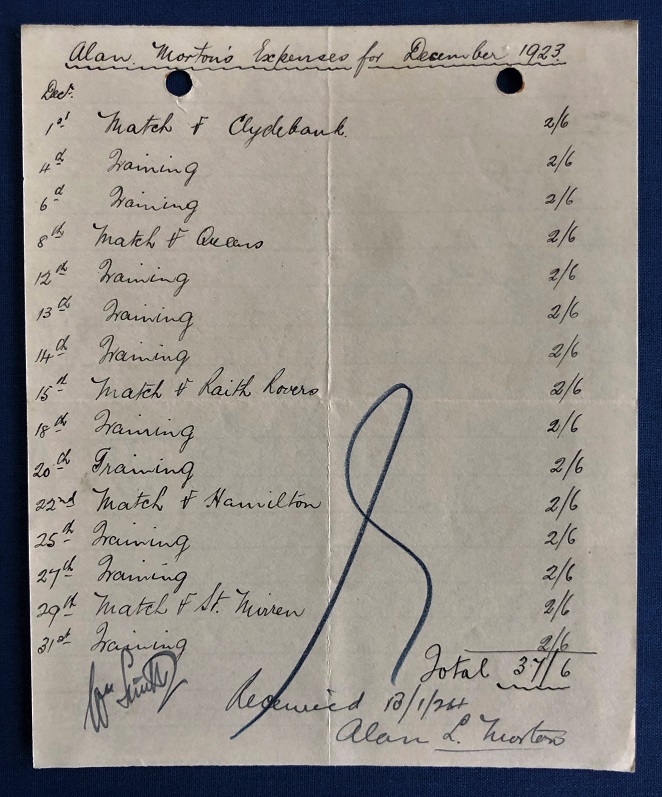 Alan Morton's Expenses for December 1923.
Dect.
1st Match v Clydebank. 2/6
4th Training 2/6
6th Training 2/6
8th Match v Queens 2/6
12th Training 2/6
13th Training 2/6
14th Training 2/6
15th Match v Raith Rovers 2/6
18th Training 2/6
20th Training 2/6
22nd Match v Hamilton 2/6
25th Training 2/6
27th Training 2/6
29th Match v St. Mirren 2/6
31st Training 2/6
Total 37/6
Wm Struth
Received 13/1/24
Alan L. Morton